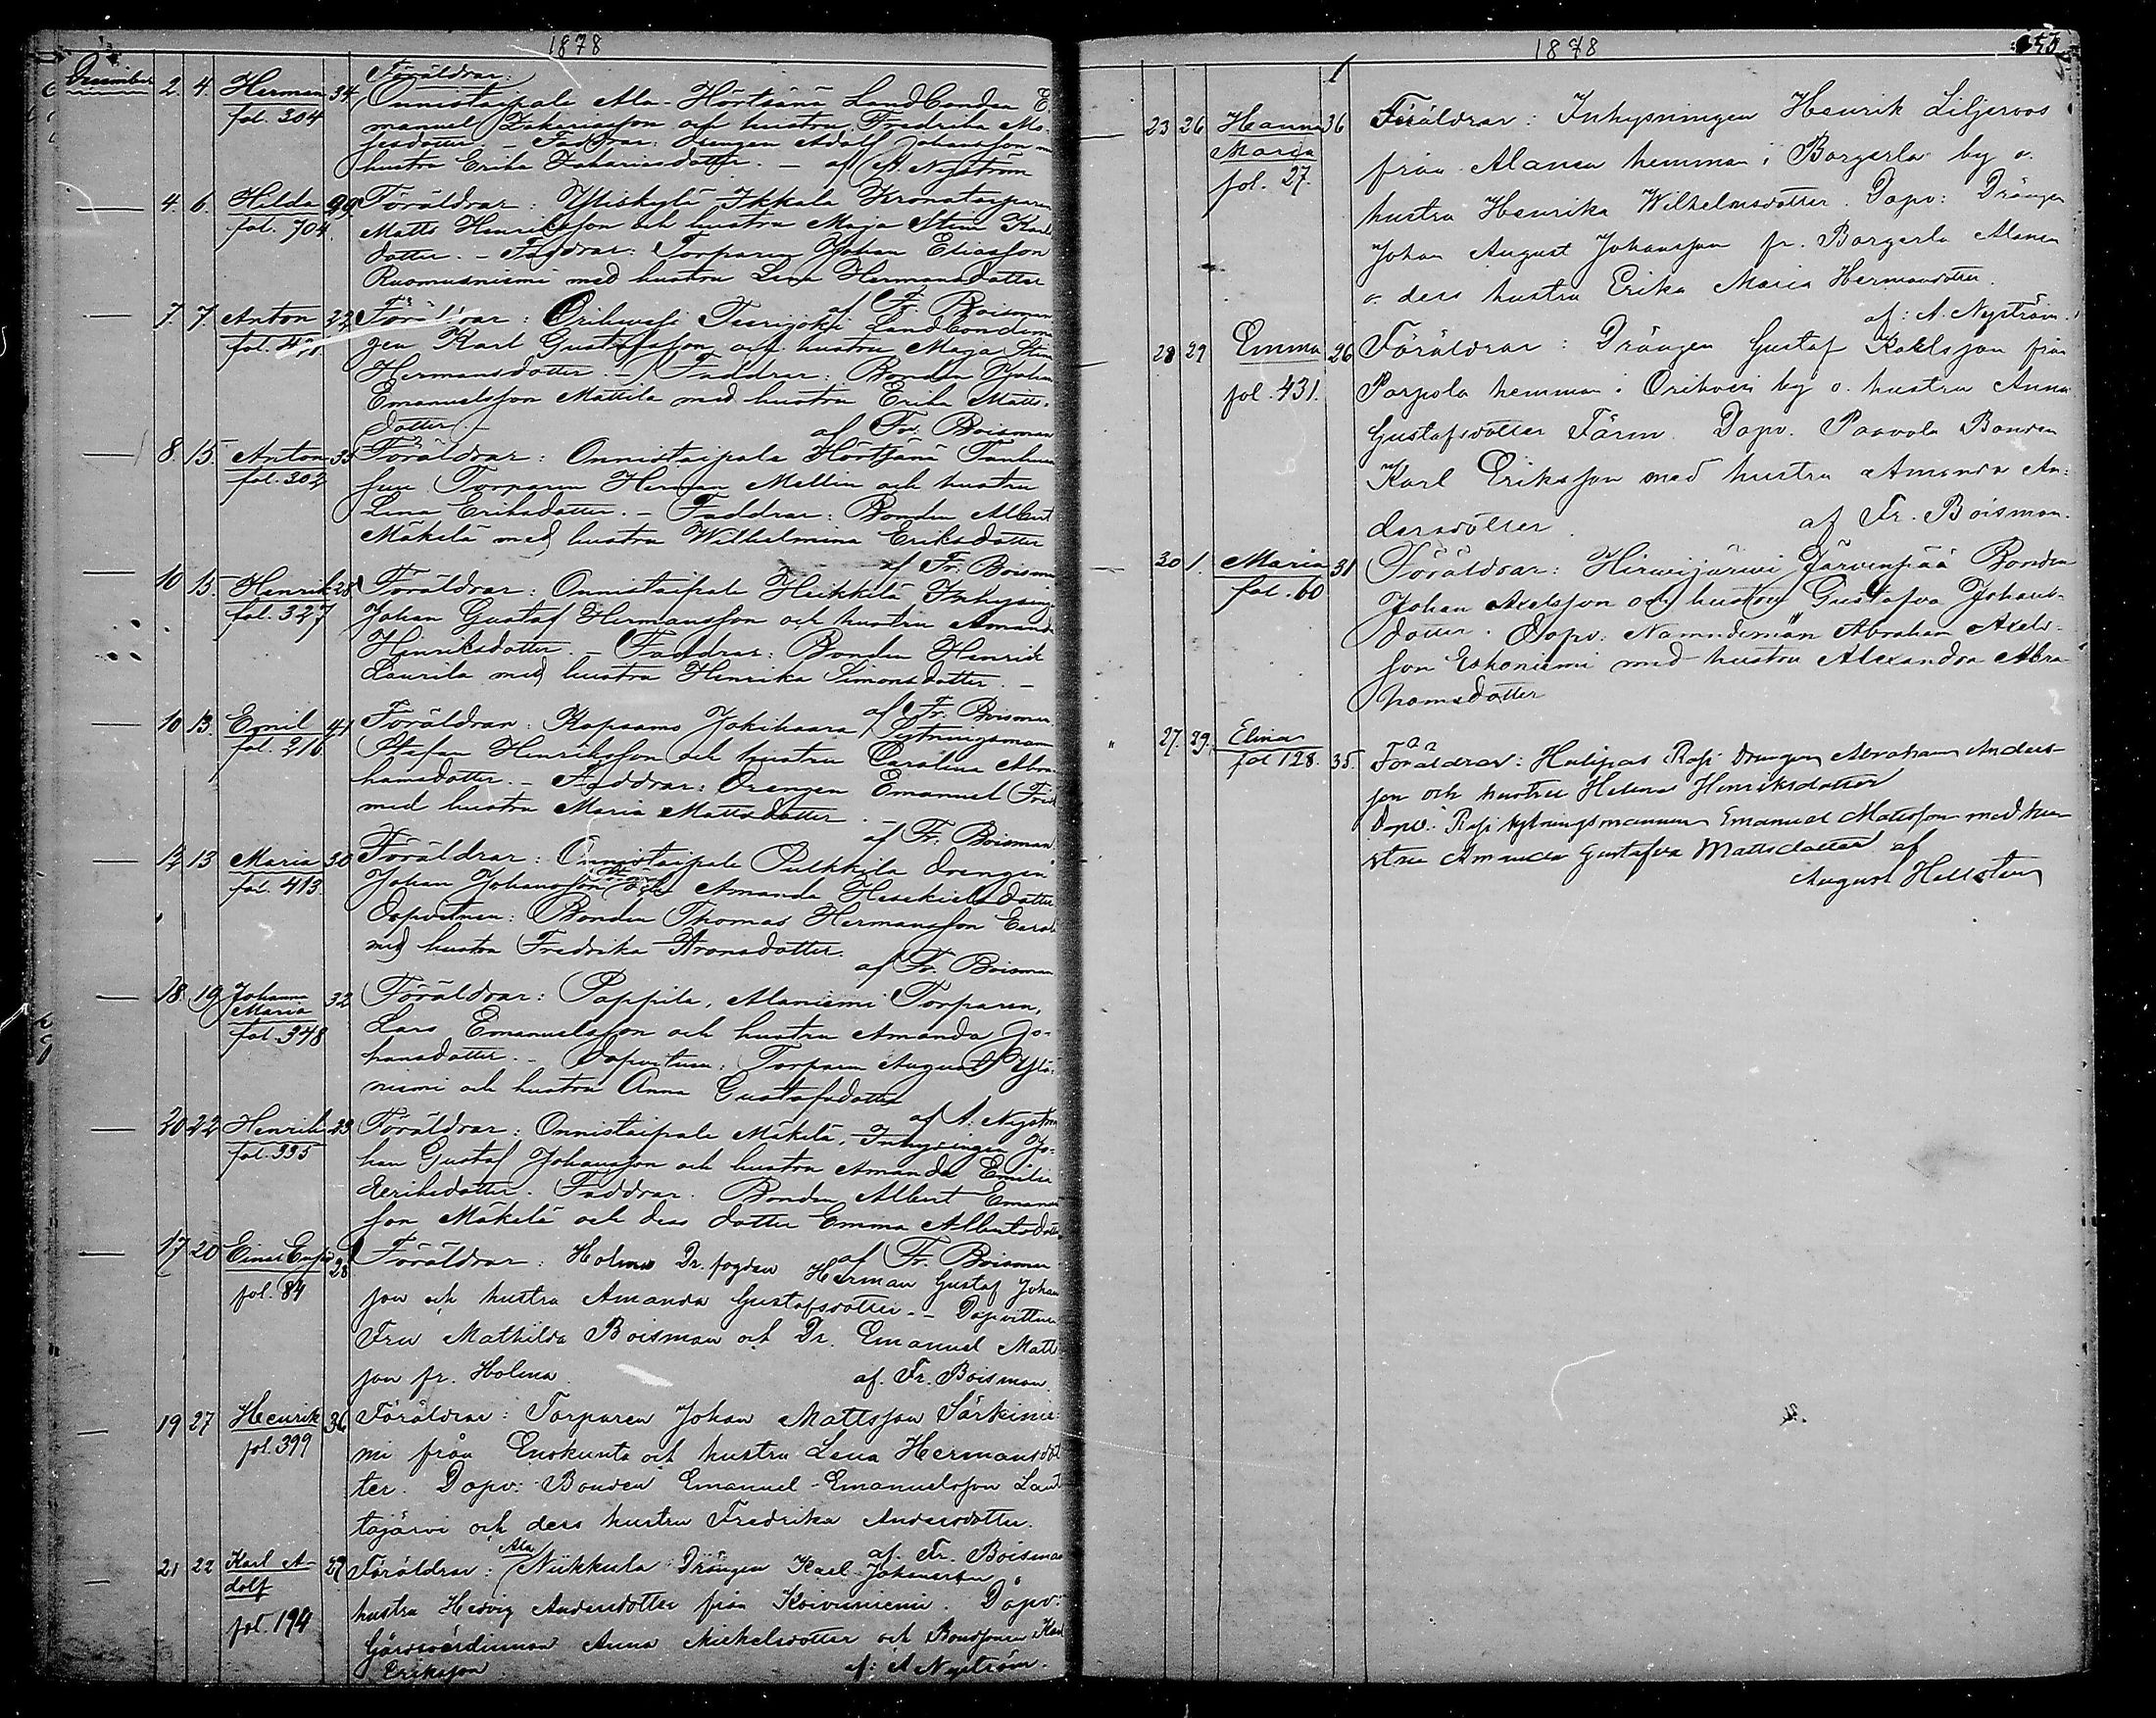 1878
December 2. 4. Herman 34 Föräldrar:
fol. 304 Onnistaipale Ala-Hörtsänä Landbonden E
manuel Zakariasson och hustru Fredrika Mo-
sesdotter. - Faddrar: Drengen Adolf Johansson m
hustru Erika Zakariasdotter. - af A. Nyström
4. 6. Hilda 29 Föräldrar: Yliskylä Ikkala Kronotorparen
fol. 704. Matts Henriksson och hustru Maja Stina Karls
dotter. - Faddrar: Torparen Johan Eliasson
Ruomusniemi med hustru Lena Hermansdotter
af Fr. Boisman
7. 7. Anton 22 Föräldrar: Orihvesi Teerijoki Landbondem
fol. gen Karl Gustafsson och hustru Maja Stina
Hermansdotter. - Faddrar: Bonden Johan
Emanuelsson Mattila med hustru Erika Matts-
dotter. - af Fr. Boisman
8. 15. Anton 35 Föräldrar: Onnistaipale Hörtsänä
fol. 302 Torparen Herman Mellin och hustru
Lena Eriksdotter. - Faddrar: Bonden Albert
Mäkelä med hustru Wilhelmina Eriksdotter
af Fr. Boisman
10 15. Henrik 28 Föräldrar: Onnistaipale Heikkilä Inhysing
fol. 327 Johan Gustaf Hermansson och hustru Amanda
Henriksdotter. - Faddrar: Bonden Henrik
Laurila med hustru Henrika Simonsdotter. -
af Fr. Boisman
10 13. Emil 41 Föräldrar: Kopsamo Jokihaara Sytningsmann
fol. 216 Stefan Henriksson och hustru Carolina Abra-
hamsdotter. - Faddrar: Drengen Emanuel
med hustru Maria Mattsdotter. -
af Fr. Boisman
12 13 Maria 30 Föräldrar: Onnistaipale Pulkkila drengen
fol. 413. Johan Johansson Amanda Hesekielsdotter
Dopvittnen: Bonden Thomas Hermansson
med hustru Fredrika Aronsdotter.
af Fr. Boisman
18 19 Johanna 32 Föräldrar: Pappila, Alaniemi Torparen,
Maria Lars Emanuelsson och hustru Amanda Jo-
fol. 348 hansdotter. - Dopvittnen: Torparen August Ylä-
niemi och hustru Anna Gustafsdotter
af A. Nyström
20 22 Henrik 23 Föräldrar: Onnistaipale Mäkelä, Inhysingen Jo-
fol. 335 han Gustaf Johansson och hustru Amanda Emilia
Eeriksdotter. Faddrar. Bonden Albert Emanuel
son Mäkelä och dess dotter Emma Albertsdotter
af Fr. Boisman
17 20 Einar 28 Föräldrar: Holma Dr. fogden Herman Gustaf Johan
fol. 84 son och hustru Amanda Gustafsdotter. - Dopvittnen
Fru Mathilda Boisman och Dr. Emanuel Matt
son fr. Holma. af. Fr. Boisman.
19 27 Henrik 36 Föräldrar: Torparen Johan Mattsson Särkinie
fol. 399 mi från Enokunta och hustru Lena Hermansdot
ter. Dopv: Bonden Emanuel Emanuelsson Laut
tajärvi och dess hustru Fredrika Andersdotter.
af. Fr. Boisman
21 22 Karl A- 29 Föräldrar: Ala Niikkula Drängen Karl Johansson
dolf hustru Hedvig Andersdotter från Koivuniemi. Dopv:
fol. 194 Gårdsvärdinnan Anna Mickelsdotter och Bondsonen Karl
Eriksson. af: A Nyström.
1878
23 26 Hanna 36 Föräldrar: Inhysningen Henrik Liljeroos
Maria från Alanen hemman i Borgerla by o.
fol. 27. hustru Henrika Wilhelmsdotter. Dopv: Drängen
Johan August Johansson fr. Borgerla Alanen
o. dess hustru Erika Maria Hermansdotter.
af: A. Nyström.
28 29 Emma 26 Föräldrar: Drängen Gustaf Karlsson från
fol. 431. Parpola hemman i Orihvesi by o. hustru Anna
Gustafsdotter Färm. Dopv. Paavola Bonden
Karl Eriksson med hustru Amanda An-
dersdotter. af Fr. Boisman.
30 1. Maria 31 Föräldrar: Hirvijärvi Järvenpää Bonden
fol. 60 Johan Axelsson och hustru Gustafva Johans-
dotter. Dopv: Nämndeman Abraham Axels-
son Eskoniemi med hustru Alexandra Abra-
hamsdotter
27. 29. Elina 35. Föräldrar: Halijas Rasi Drengen Abraham Anders-
fol 128. son och hustru Helena Henriksdotter
Dopv: Rasi sytningsmannen Emanuel Mattsson med hu
stru Amanda Gustafva Mattsdotter af
August Hellsten